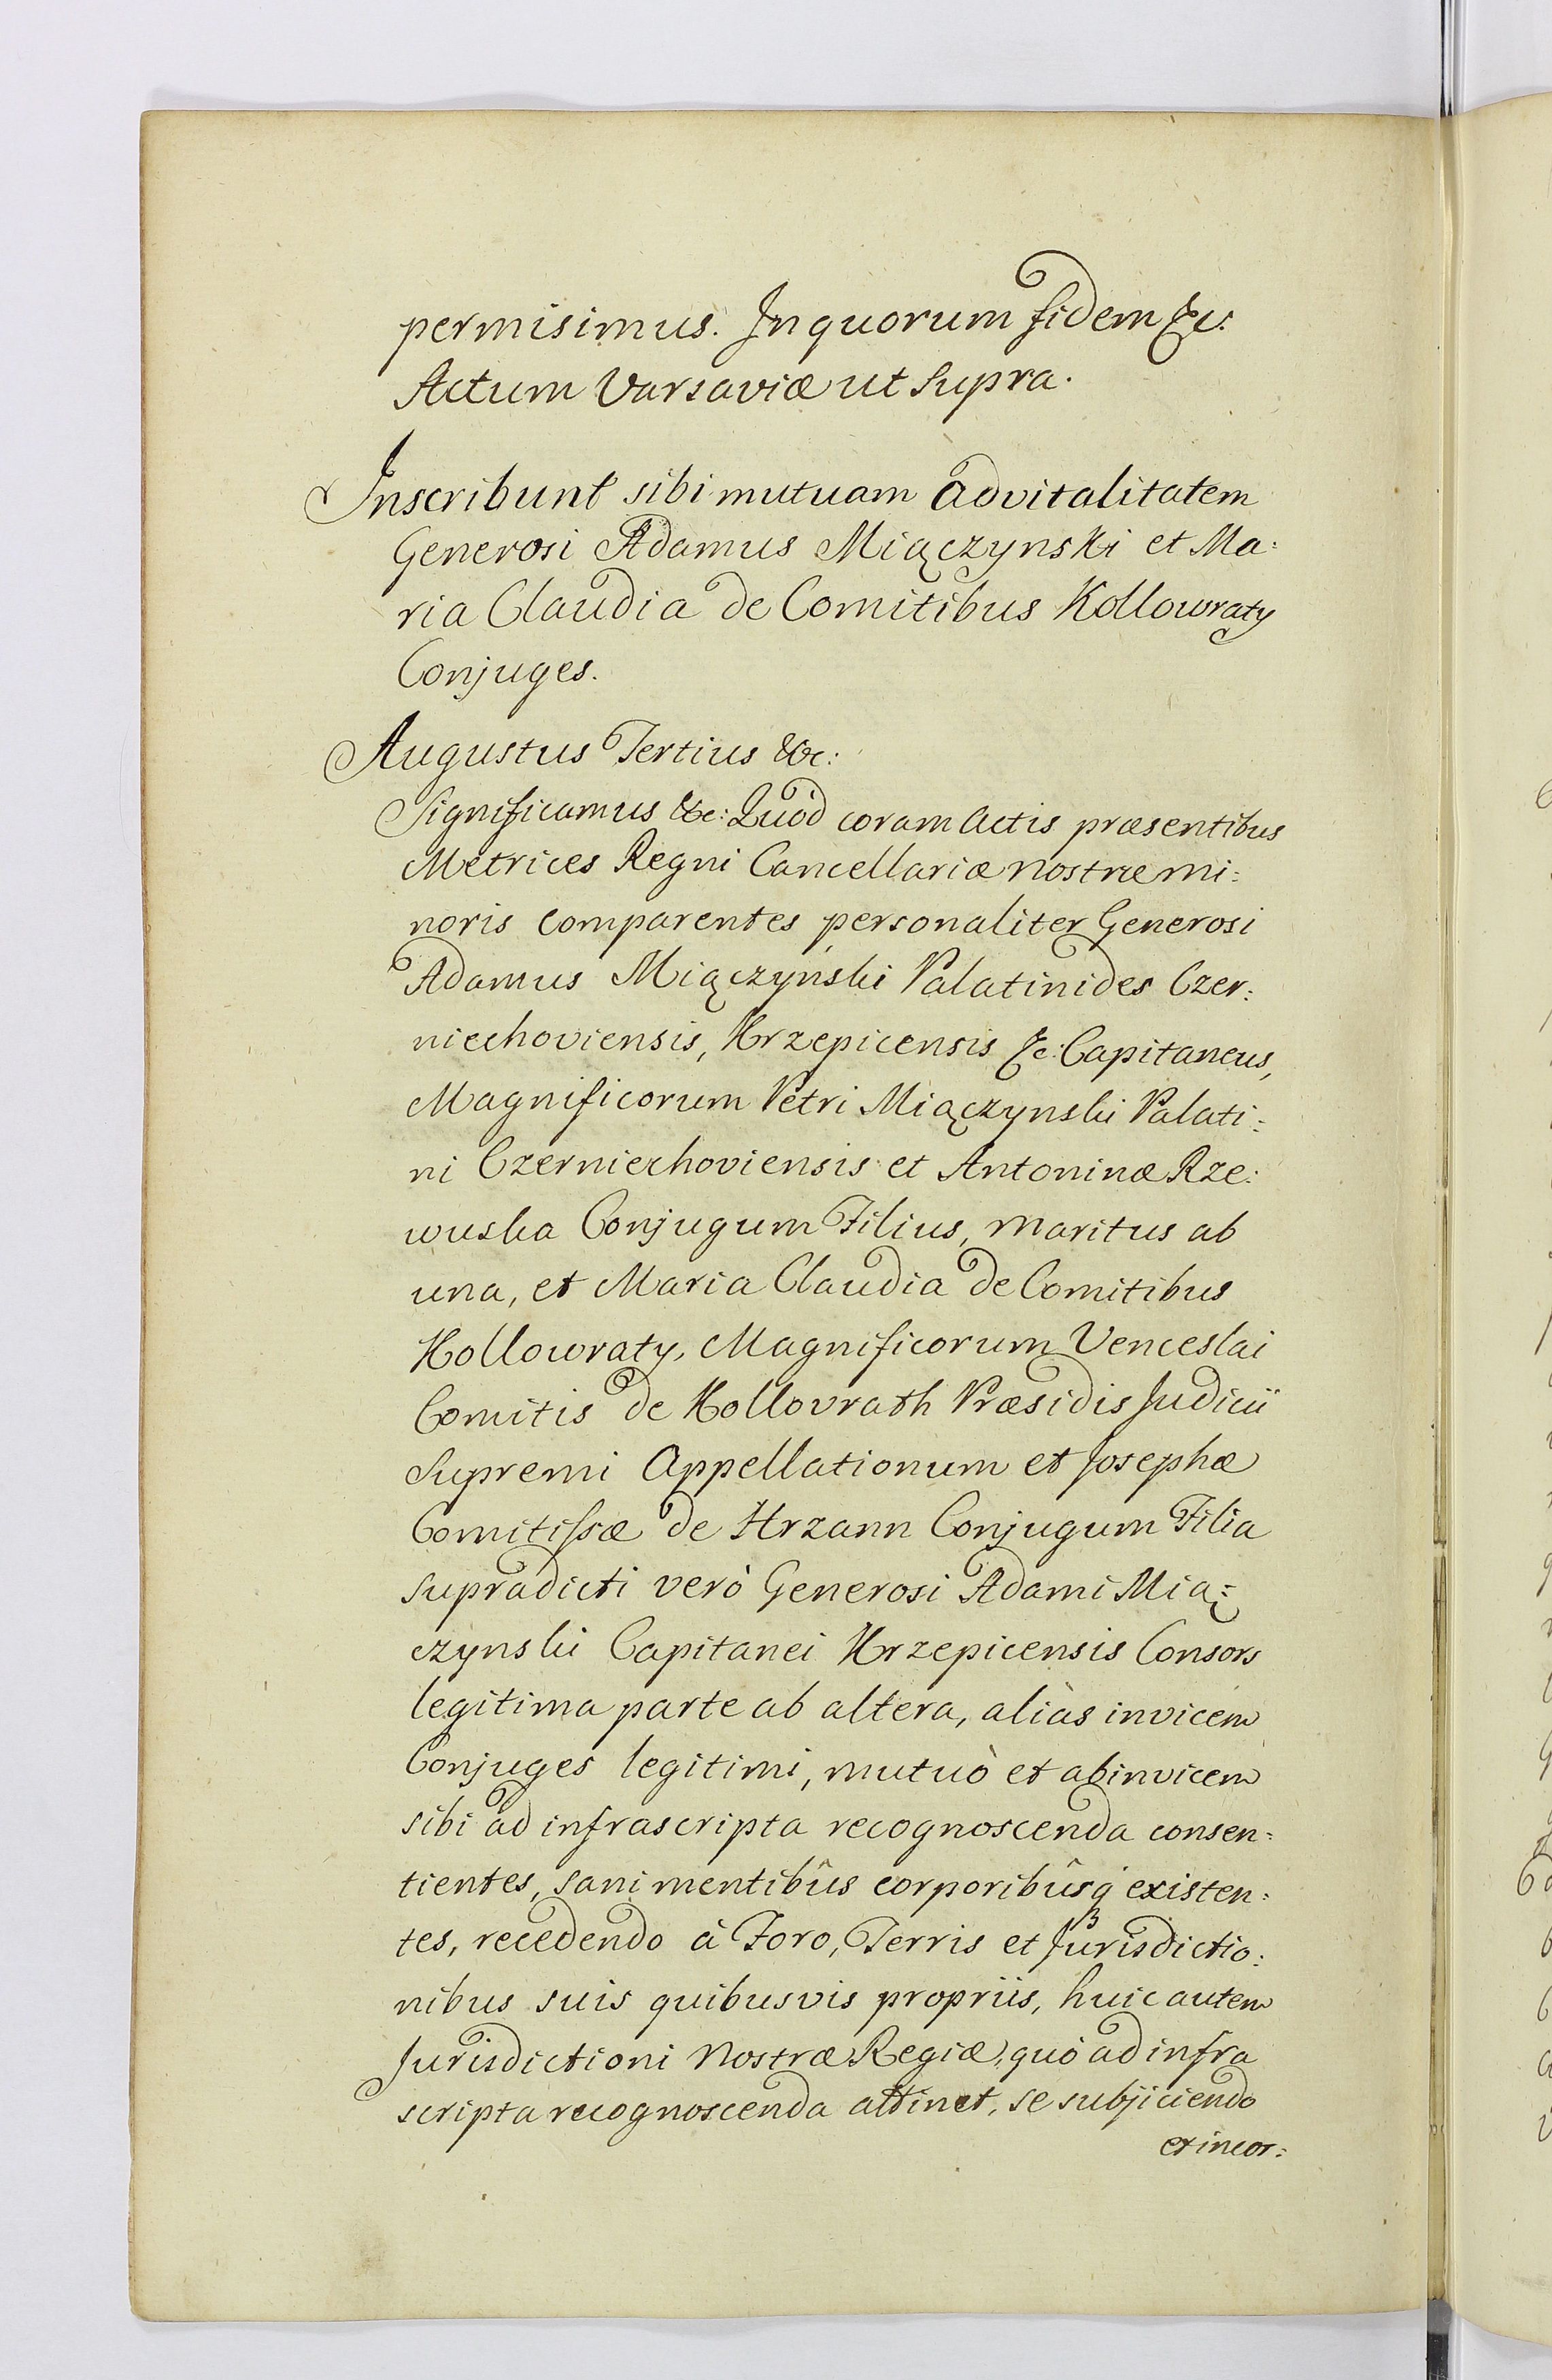 permisimus. In quorum fidem &c.
Actum Varsaviæ ut supra.
Inscribunt sibi mutuam advitalitatem
Generosi Adamus Miączynski et Ma:
ria Claudia de Comitibus Kollowraty
Conjuges.
Augustus Tertius &c:
Significamus &c: Quòd coram Actis præsentibus
Metrices Regni Cancellariæ nostræ mi:
noris comparentes personaliter Generosi
Adamus Miączyński Palatinides Czer:
niechoviensis, Krzepicensis &c: Capitaneus,
Magnificorum Petri Miączynski Palati:
ni Czerniechoviensis et Antoninæ Rze:
wuska Conjugum Filius, maritus ab
una, et Maria Claudia de Comitibus
Kollowraty, Magnificorum Venceslai
Comitis de Kollovrath Præsidis Judicii
Supremi Appellationum et Josephæ
Comitissæ de Hrzann Conjugum Filia
supradicti verò Generosi Adami Mią:
czynski Capitanei Krzepicensis Consors
legitima parte ab altera, aliàs invicem
Conjuges legitimi, mutuò et abinvicem
sibi ad infrascripta recognoscenda consen:
tientes, sani mentibûs corporibûsq́ existen:
tes, recedendo à Foro, Terris et Jurisdictio:
nibus suis quibusvis propriis, huic autem
Jurisdictioni Nostræ Regiæ, quò ad infra
scripta recognoscenda attinet, se subjiciendo
et incor: